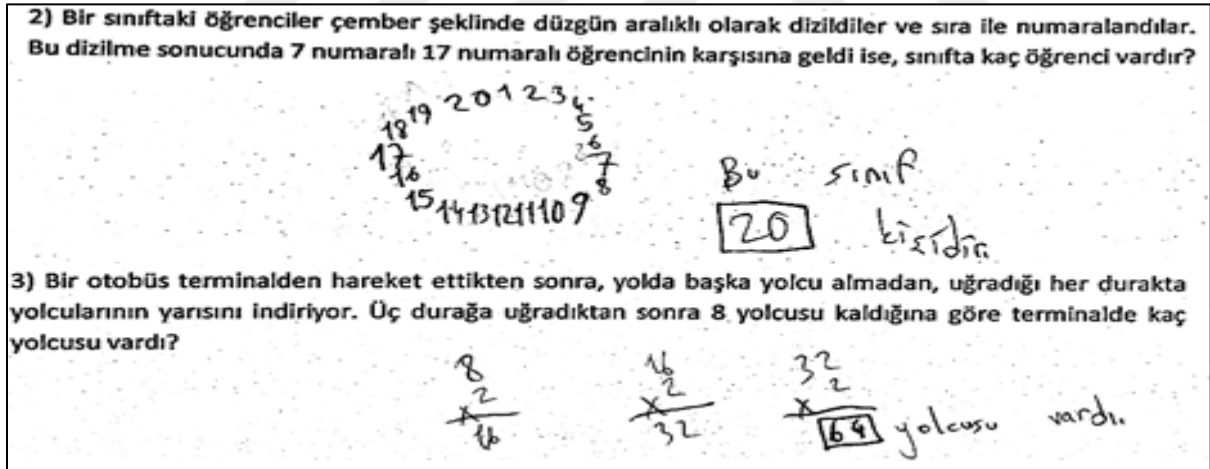 2) Bir sınıftaki öğrenciler çember şeklinde düzgün aralıklı olarak dizildiler ve sıra ile numaralandılar.
Bu dizilme sonucunda 7 numaralı 17 numaralı öğrencinin karşısına geldi ise, sınıfta kaç öğrenci vardır?
20 1 2 3 4
19 5
18 6
17 7
16 8
15 14 13 12 11 10 9
Bu sınıf
20 kişidir.
3) Bir otobüs terminalden hareket ettikten sonra, yolda başka yolcu almadan, uğradığı her durakta
yolcularının yarısını indiriyor. Üç durağa uğradıktan sonra 8 yolcusu kaldığına göre terminalde kaç
yolcusu vardı?
8 16 32
x 2 x 2 x 2
16 32 64 yolcusu vardı.